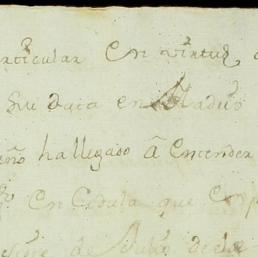 rticular en virtud
Su data en Madrid
ha llegado â entender
en Cedula que
de Julio de